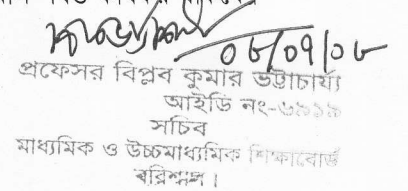 ০৮/০৭/০৮
প্রফেসর বিপ্লব কুমার ভট্টাচার্য্য
আইডি নং-৬৯১৯
সচিব
মাধ্যমিক ও উচ্চমাধ্যমিক শিক্ষাবোর্ড
বরিশাল।